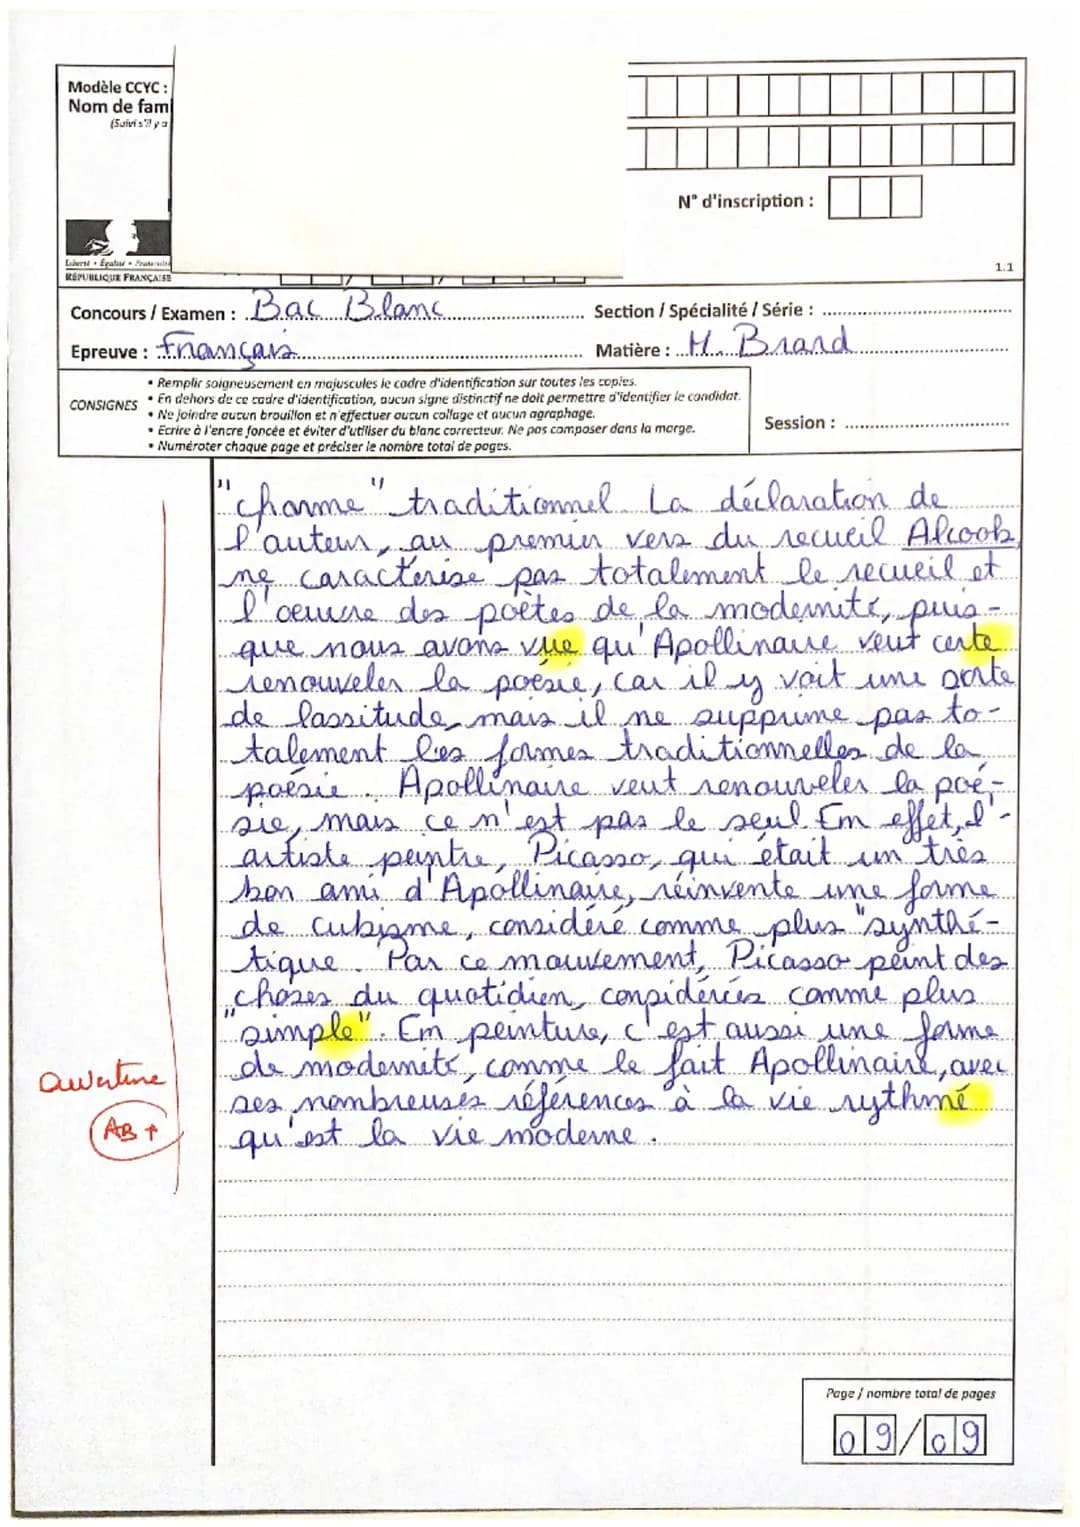 Modèle CCYC :
Nom de fam
(Suivi s'il y a
N° d'inscription :
Liberté • Égalité • Fraternité
RÉPUBLIQUE FRANÇAISE
1.1
Concours / Examen : Bac Blanc
Section / Spécialité / Série :
Epreuve : Français
Matière : M. Brand
CONSIGNES
• Remplir soigneusement en majuscules le cadre d'identification sur toutes les copies.
• En dehors de ce cadre d'identification, aucun signe distinctif ne doit permettre d'identifier le candidat.
• Ne joindre aucun brouillon et n'effectuer aucun collage et aucun agraphage.
• Ecrire à l'encre foncée et éviter d'utiliser du blanc correcteur. Ne pas composer dans la marge.
• Numéroter chaque page et préciser le nombre total de pages.
Session :
"charme" traditionnel. La déclaration de
l'auteur, au premier vers du recueil Alcools,
ne caractérise pas totalement le recueil et
l'œuvre des poètes de la modernité, puis-
que nous avons vue qu'Apollinaire veut certe
renouveler la poésie, car il y voit une sorte
de lassitude, mais il ne supprime pas to-
talement les formes traditionnelles de la
poésie. Apollinaire veut renouveler la poé-
sie, mais ce n'est pas le seul. En effet, l'-
artiste peintre, Picasso, qui était un très
bon ami d'Apollinaire, réinvente une forme
de cubisme, considéré comme plus "synthé-
tique. Par ce mouvement, Picasso peint des
choses du quotidien, considérées comme plus
"simple". En peinture, c'est aussi une forme
de modernité, comme le fait Apollinaire, avec
ses nombreuses références à la vie rythmé
qu'est la vie moderne.
ouverture
AB ↑
Page / nombre total de pages
09/09